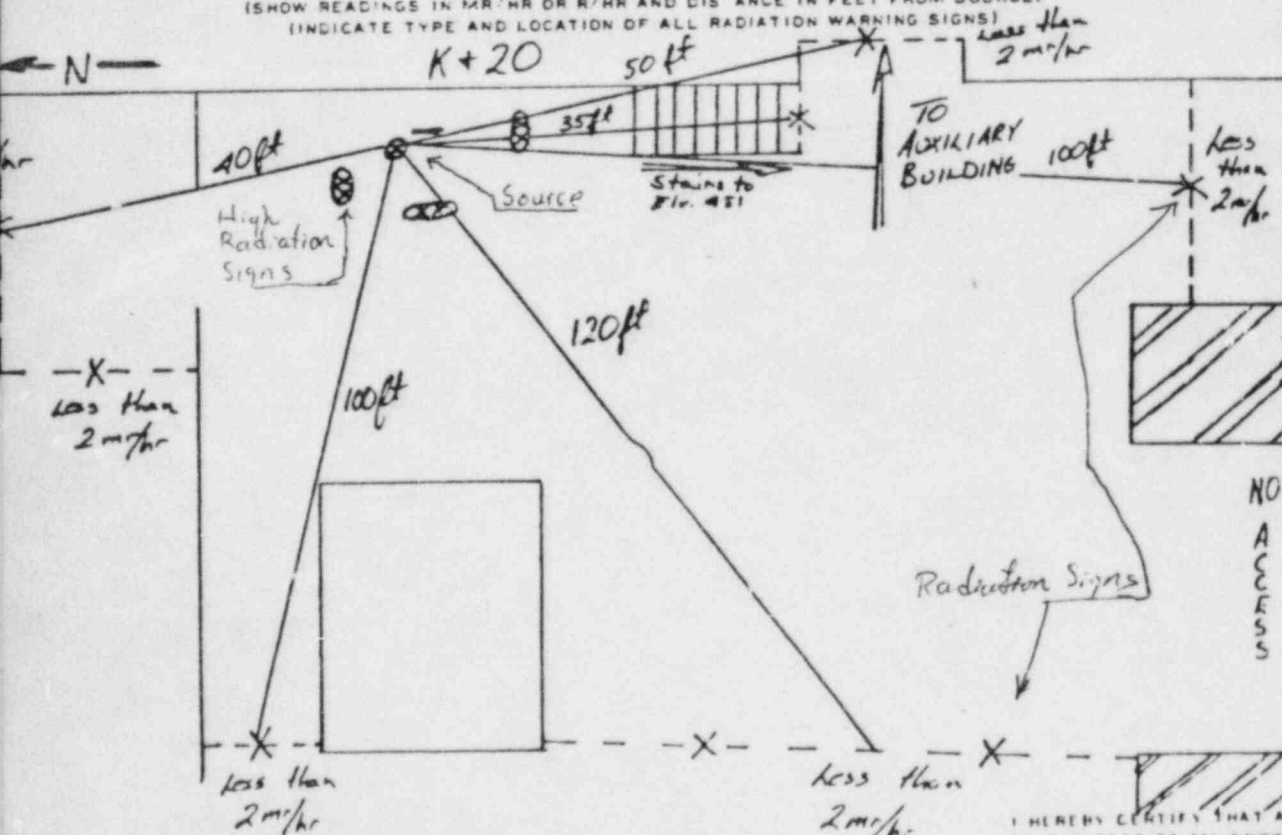 (SHOW READINGS IN MR/HR OR R/HR AND DISTANCE IN FEET FROM SOURCE)
(INDICATE TYPE AND LOCATION OF ALL RADIATION WARNING SIGNS)
Less than
2 mr/hr
N
K+20
50 ft
35ft
40ft
/hr
TO
AUXILIARY
BUILDING
100ft
Less
than
2 mr/hr
Source
Stairs to
Elv. 451
High
Radiation
Signs
120ft
100ft
Less than
2 mr/hr
NO
ACCESS
Radiation Signs
Less than
2 mr/hr
Less than
2 mr/hr
I HEREBY CERTIFY THAT A